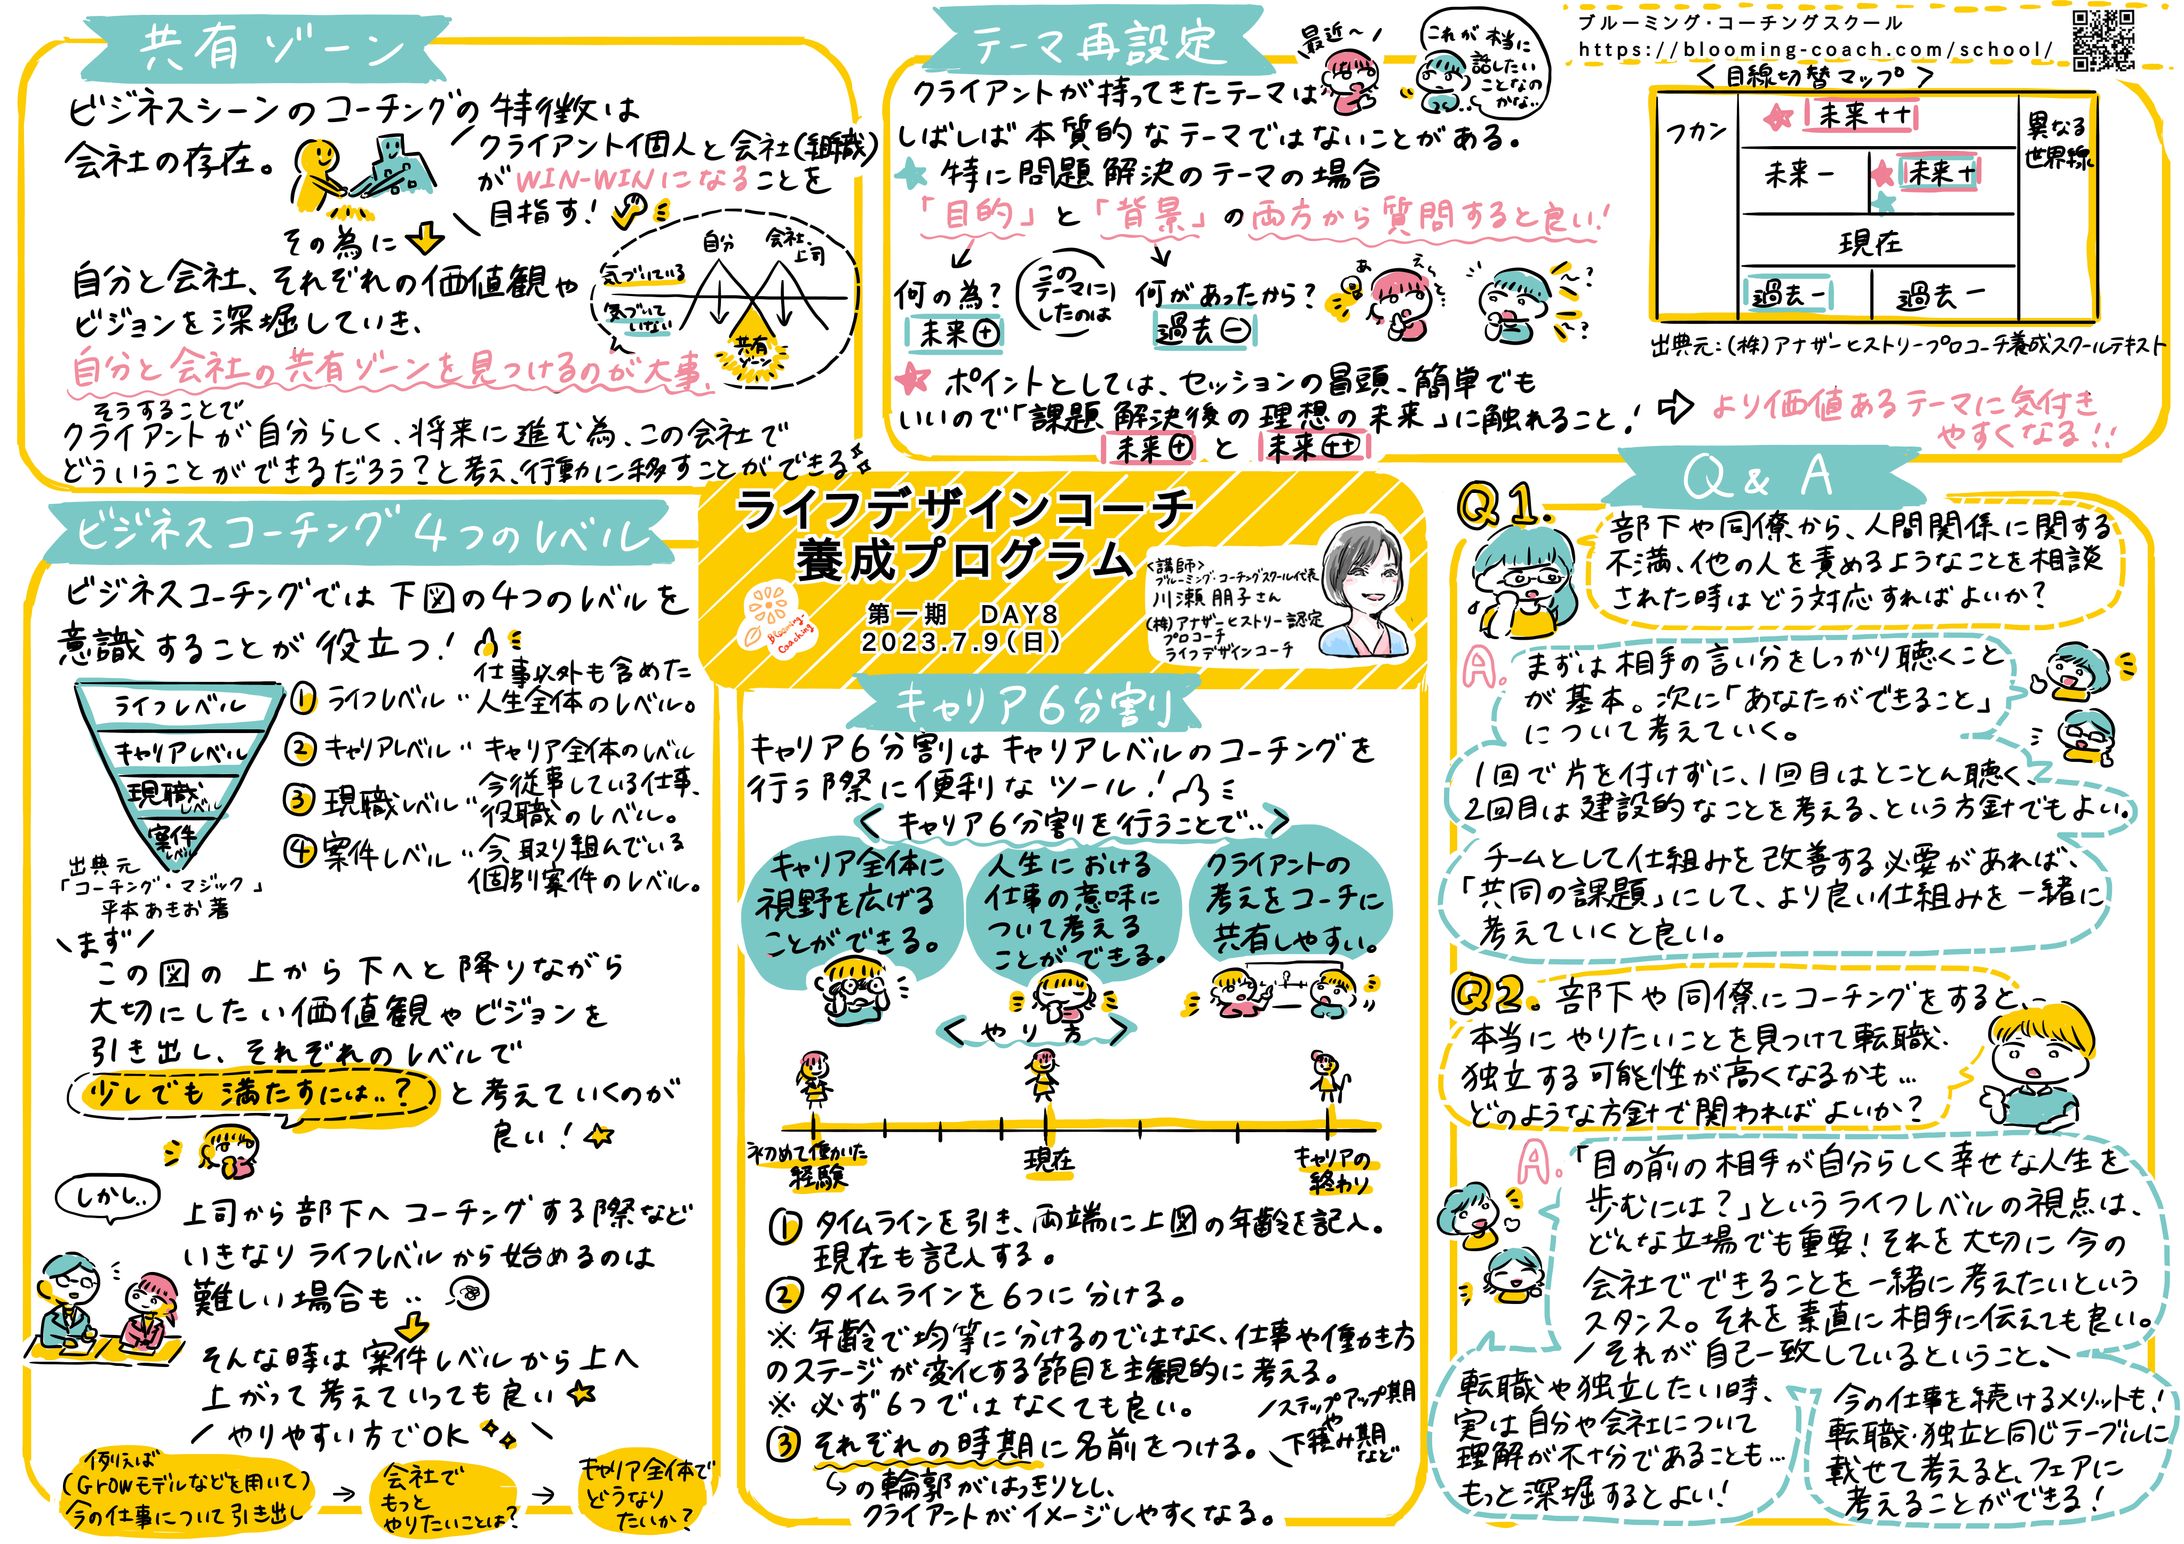 共有ゾーン
ビジネスシーンのコーチングの特徴は
会社の存在。
クライアント個人と会社(組織)
がWIN-WINになることを
目指す！
その為に
自分と会社、それぞれの価値観や
ビジョンを深堀していき、
自分と会社の共有ゾーンを見つけるのが大事。
自分
会社
上司
気づいている
気づいて
いない
共有
ゾーン
そうすることで
クライアントが自分らしく、将来に進む為、この会社で
どういうことができるだろう？と考え、行動に移すことができる
テーマ再設定
最近〜
これが本当に
話したい
ことなの
かな‥
クライアントが持ってきたテーマは
しばしば本質的なテーマではないことがある。
★特に問題解決のテーマの場合
「目的」と「背景」の両方から質問すると良い！
何の為？
未来⊕
この
テーマに
したのは
何があったから？
過去⊖
あ
えっと…
？
？
★ポイントとしては、セッションの冒頭、簡単でも
いいので「課題解決後の理想の未来」に触れること！
未来⊕と未来⊕⊕
⇨より価値あるテーマに気付き
やすくなる！！
ブルーミング・コーチングスクール
https://blooming-coach.com/school/
＜目線切替マップ＞
フカン
★未来++
異なる
世界線
未来−
★未来+
★
現在
過去−
過去−
出典元：(株)アナザーヒストリープロコーチ養成スクールテキスト
ビジネスコーチング4つのレベル
ビジネスコーチングでは下図の4つのレベルを
意識することが役立つ！
ライフレベル
キャリアレベル
現職
レベル
案件
レベル
出典元
「コーチング・マジック」
平本あきお著
①ライフレベル‥仕事以外も含めた
人生全体のレベル。
②キャリアレベル‥キャリア全体のレベル
③現職レベル‥今従事している仕事、
役職のレベル。
④案件レベル‥今取り組んでいる
個別案件のレベル。
＼まず／
この図の上から下へと降りながら
大切にしたい価値観やビジョンを
引き出し、それぞれのレベルで
少しでも満たすには‥？と考えていくのが
良い！☆
しかし‥
上司から部下へコーチングする際など
いきなりライフレベルから始めるのは
難しい場合も‥
そんな時は案件レベルから上へ
上がって考えていっても良い☆
／やりやすい方でOK＼
例えば
(Growモデルなどを用いて)
今の仕事について引き出し
→
会社で
もっと
やりたいことは？
→
キャリア全体で
どうなり
たいか？
ライフデザインコーチ
養成プログラム
第一期　DAY8
2023.7.9(日)
Blooming-
Coaching
＜講師＞
ブルーミング・コーチングスクール代表
川瀬朋子さん
(株)アナザーヒストリー認定
プロコーチ
ライフデザインコーチ
キャリア6分割
キャリア6分割はキャリアレベルのコーチングを
行う際に便利なツール！
＜キャリア6分割を行うことで‥＞
キャリア全体に
視野を広げる
ことができる。
人生における
仕事の意味に
ついて考える
ことができる。
クライアントの
考えをコーチに
共有しやすい。
＜やり方＞
初めて働いた
経験
現在
キャリアの
終わり
①タイムラインを引き、両端に上図の年齢を記入。
現在も記入する。
②タイムラインを6つに分ける。
※年齢で均等に分けるのではなく、仕事や働き方
のステージが変化する節目を主観的に考える。
※必ず6つではなくても良い。
③それぞれの時期に名前をつける。
／ステップアップ期
や
＼下積み期
など
↳の輪郭がはっきりとし、
クライアントがイメージしやすくなる。
Q&A
Q1.
部下や同僚から、人間関係に関する
不満、他の人を責めるようなことを相談
された時はどう対応すればよいか？
A.
まずは相手の言い分をしっかり聴くこと
が基本。次に「あなたができること」
について考えていく。
1回で片を付けずに、1回目はとことん聴く、
2回目は建設的なことを考える、という方針でもよい。
チームとして仕組みを改善する必要があれば、
「共同の課題」にして、より良い仕組みを一緒に
考えていくと良い。
Q2.部下や同僚にコーチングをすると、
本当にやりたいことを見つけて転職・
独立する可能性が高くなるかも…
どのような方針で関わればよいか？
A.
「目の前の相手が自分らしく幸せな人生を
歩むには？」というライフレベルの視点は、
どんな立場でも重要！それを大切に今の
会社でできることを一緒に考えたいという
スタンス。それを素直に相手に伝えても良い。
／それが自己一致しているということ。＼
転職や独立したい時、
実は自分や会社について
理解が不十分であることも…
もっと深堀するとよい！
今の仕事を続けるメリットも！
転職・独立と同じテーブルに
載せて考えると、フェアに
考えることができる！